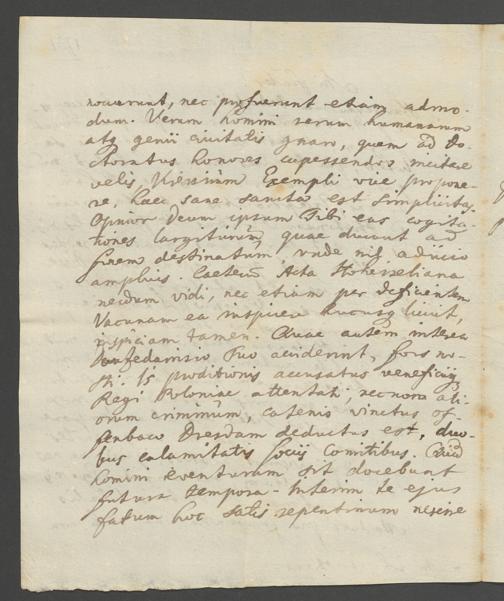 nocuerunt, nec profuerunt etiam admo-
dum. Verum homini rerum humanarum
atq genii civitatis gnaro, quem ad Do-
ctoratus honores capessendos incitare
velis, Exempli vice propone-
re, haec sane sancta est simplicitas.
Opinor Deum ipsum Tibi eas cogita-
tiones largiturum, quae ducunt ad
finem destinatum, unde nil adiicio
amplius. Caeterum Acta
necdum vidi, nec etiam per deficientem
Vacunam ea inspicere hucusq licuit,
inspiciam tamen. Quae autem interea
suo acciderint, fors no-
sti. Is proditionis accusatus veneficiiq
Regi Poloniae attentati, nec non ali-
orum criminum, catenis vinctus of-
fenbaco Dresdam deductus est, duo-
bus calamitatis sociis comitibus. Quid
homini eventurum sit docebunt
futura tempora. Interim te ejus
fatum hoc satis repentinum nescire